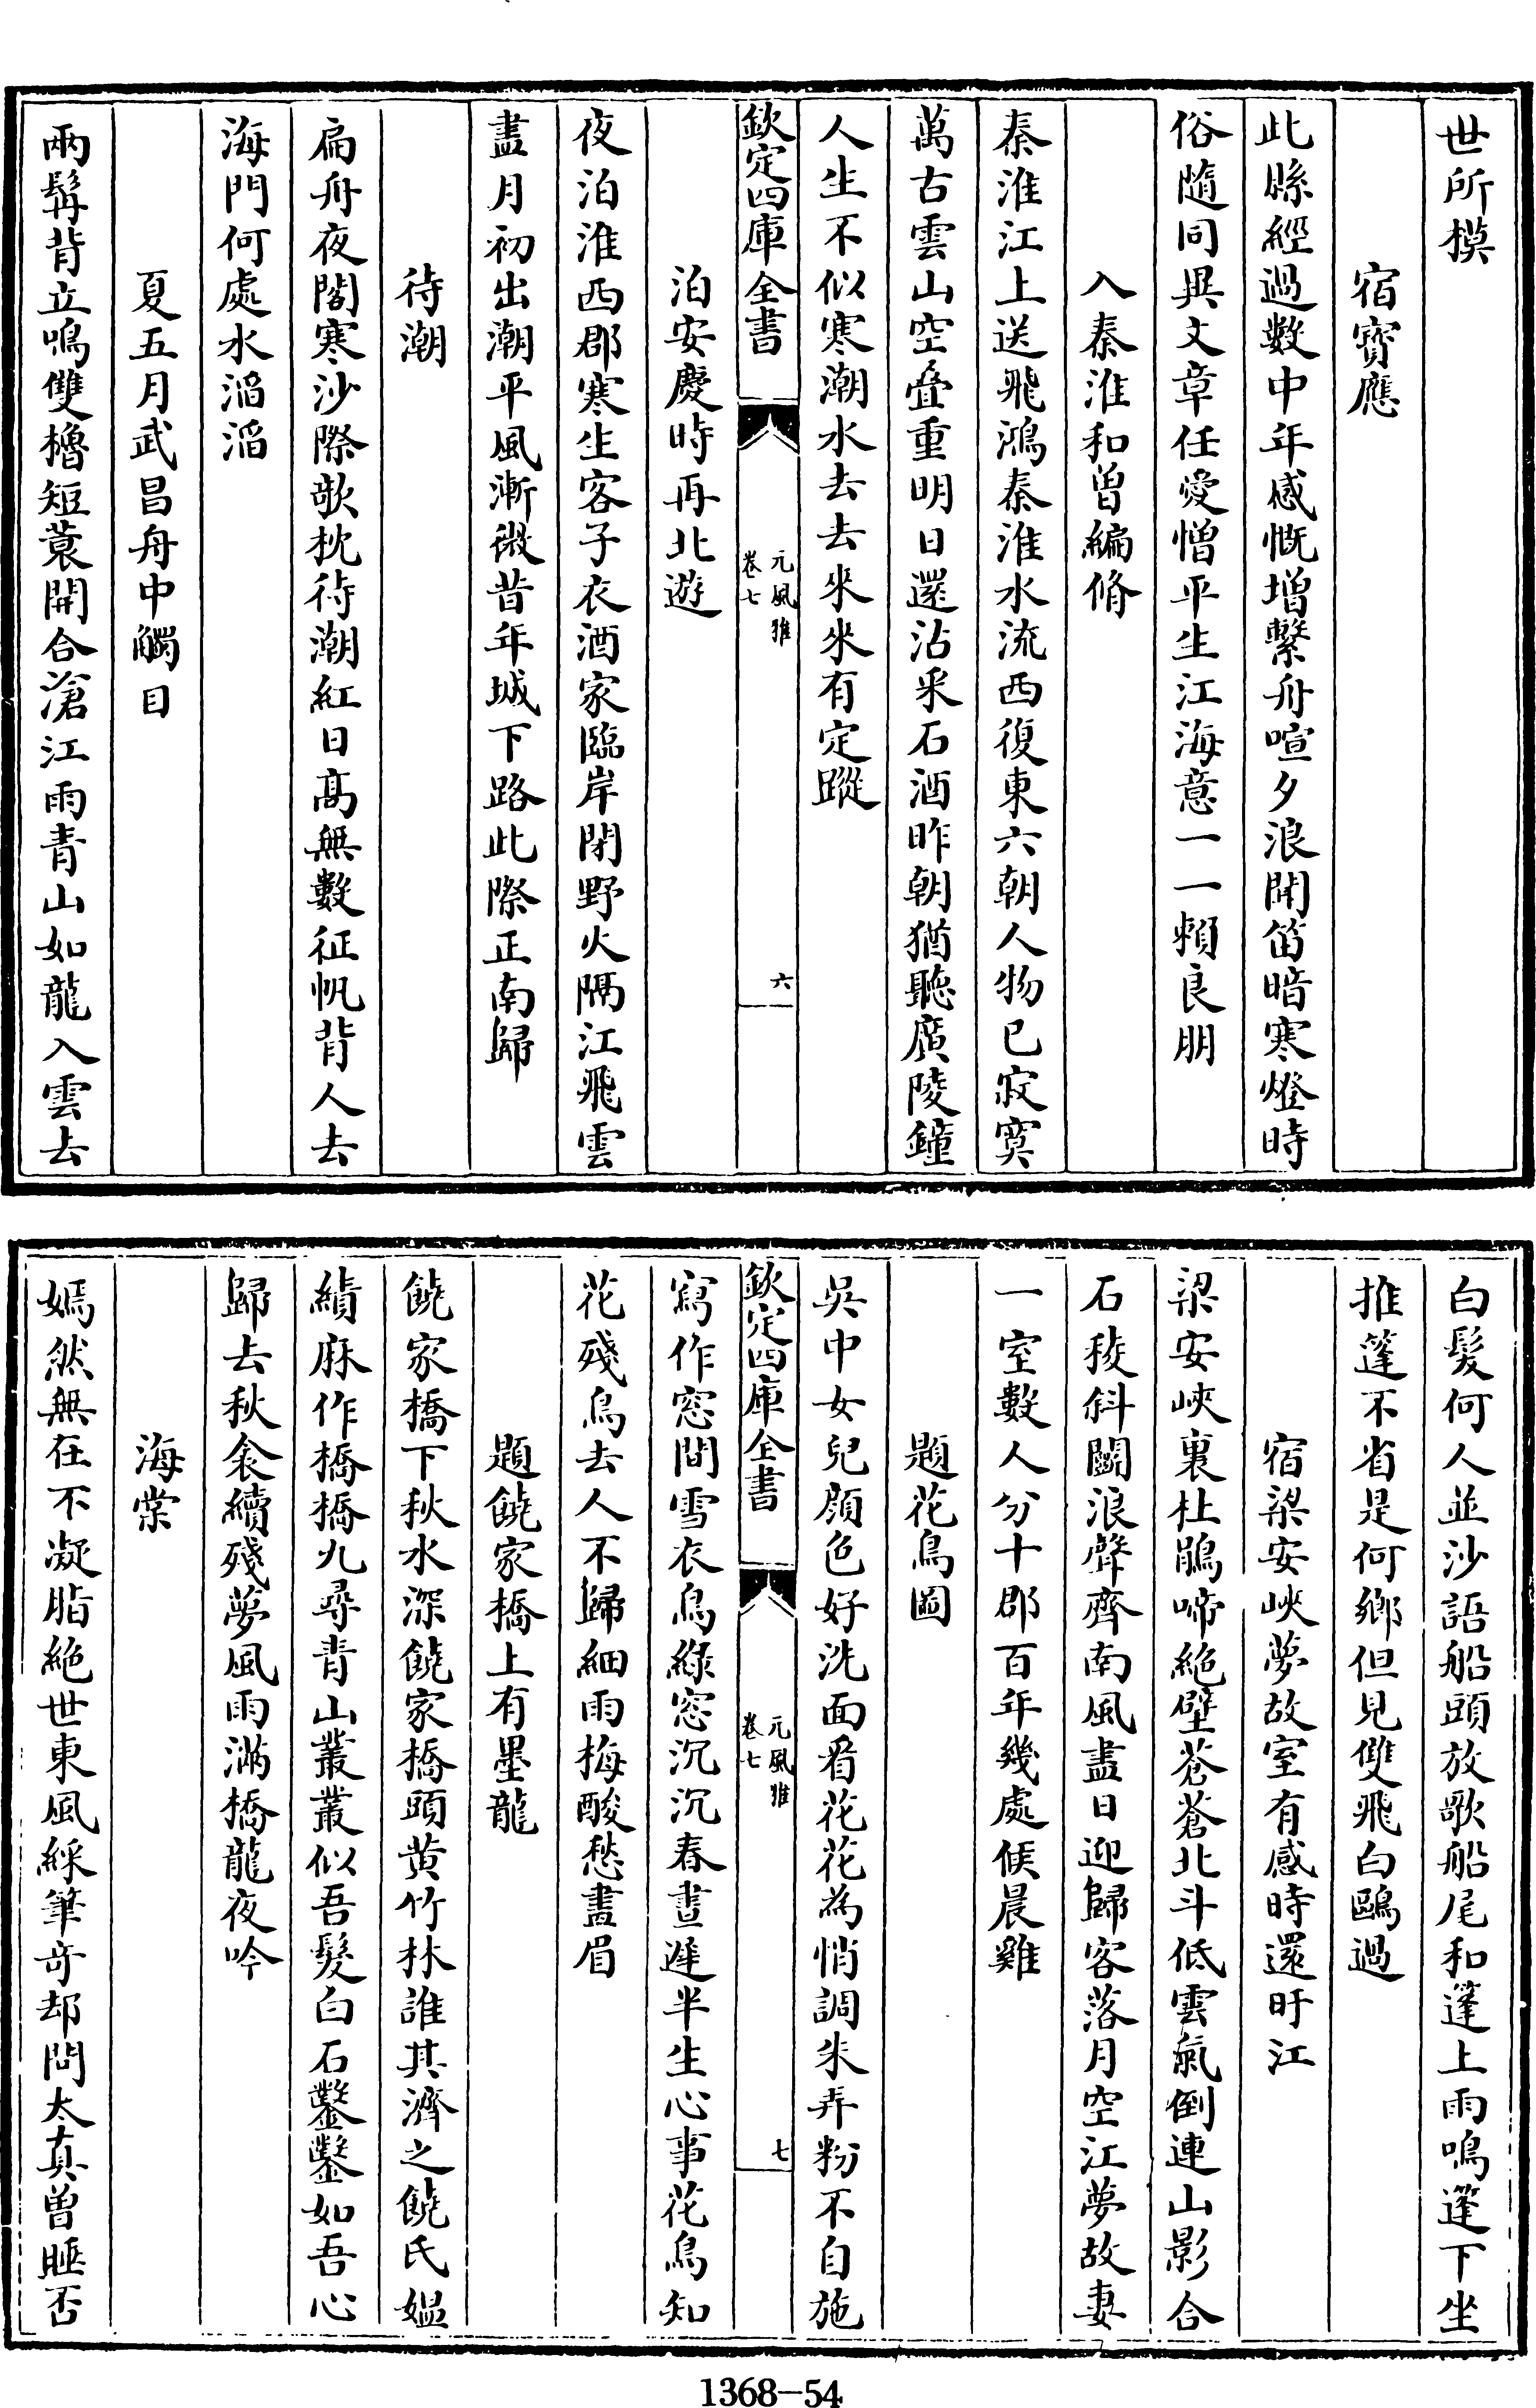 世所模
宿寶應
此縣經過數中年感慨增繫舟喧夕浪聞笛暗寒燈時
俗隨同異文章任愛憎平生江海意一一賴良朋
入秦淮和曾編脩
秦淮江上送飛鴻秦淮水流西復東六朝人物已寂寞
萬古雲山空疊重明日還沽采石酒昨朝猶聽廣陵鐘
人生不似寒潮水去去來來有定蹤
欽定四庫全書
元風雅
卷七
六
泊安慶時再北遊
夜泊淮西郡寒生客子衣酒家臨岸閉野火隔江飛雲
盡月初出潮平風漸微昔年城下路此際正南歸
待潮
扁舟夜閣寒沙際欹枕待潮紅日髙無數征帆背人去
海門何處水滔滔
夏五月武昌舟中觸目
兩髯背立鳴雙櫓短蓑開合滄江雨青山如龍入雲去
白髮何人並沙語船頭放歌船尾和篷上雨鳴篷下坐
推篷不省是何鄉但見雙飛白鷗過
宿梁安峽夢故室有感時還旴江
梁安峽裏杜鵑啼絶壁蒼蒼北斗低雲氣倒連山影合
石稜斜鬭浪聲齊南風盡日迎歸客落月空江夢故妻
一室數人分十郡百年幾處候晨雞
題花鳥圖
吳中女兒顔色好洗面看花花為悄調朱弄粉不自施
欽定四庫全書
元風雅
卷七
七
寫作窓間雪衣鳥綠窓沉沉春晝遲半生心事花鳥知
花殘鳥去人不歸細雨梅酸愁畫眉
題饒家橋上有墨龍
饒家橋下秋水深饒家橋頭黄竹林誰其濟之饒氏媪
績麻作橋橋九尋青山叢叢似吾髮白石鑿鑿如吾心
歸去秋衾續殘夢風雨滿橋龍夜吟
海棠
嫣然無在不凝脂絶世東風綵筆竒却問太真曾睡否
1368-54